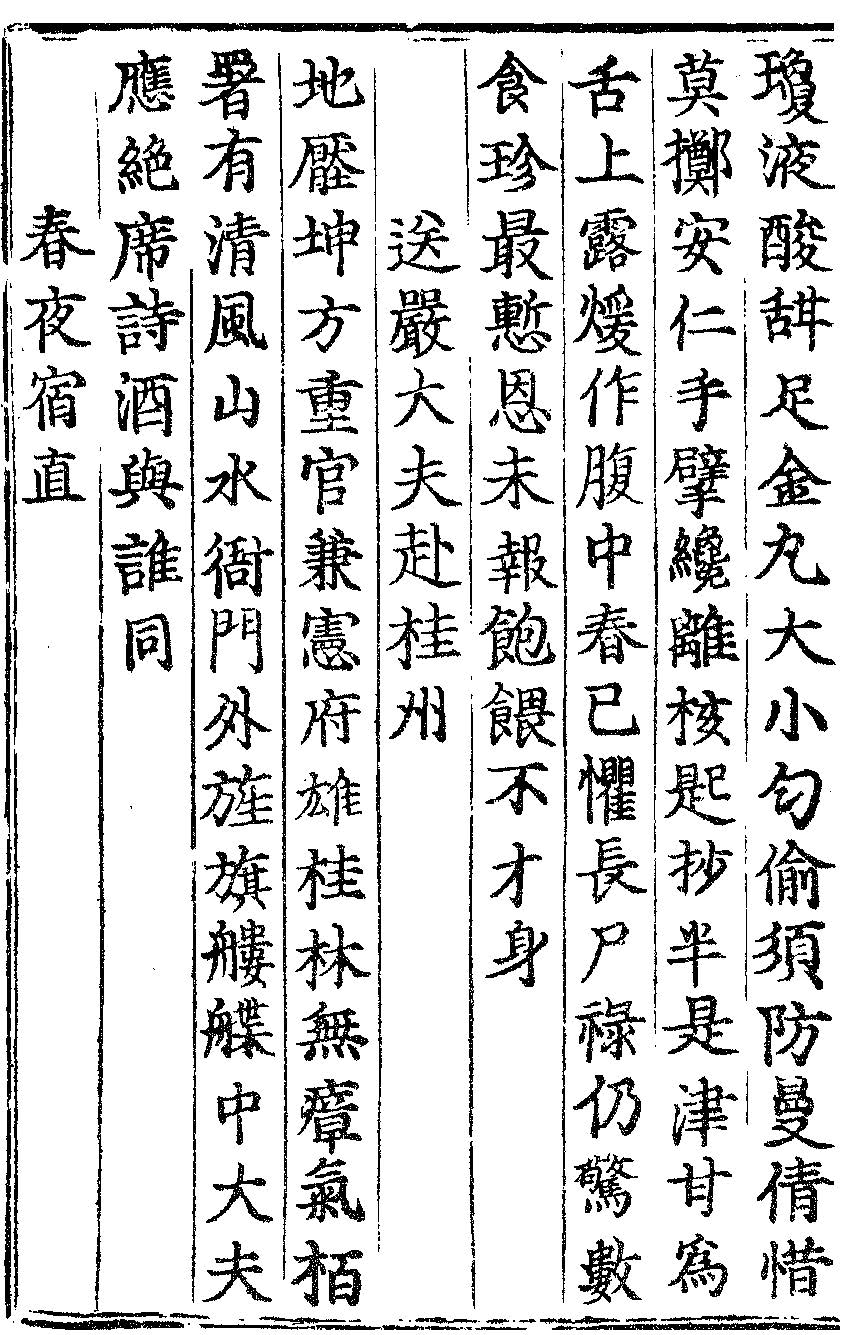 瓊液酸甛足金丸大小匀偷須防曼倩惜
莫擲安仁手擘纔離核匙抄半是津甘爲
舌上露煖作腹中春已懼長尸祿仍驚數
食珍最慙恩未報飽餵不才身
送嚴大夫赴桂州
地壓坤方重官兼憲府雄桂林無瘴氣栢
署有清風山水衙門外旌旗艛艓中大夫
應絶席詩酒與誰同
春夜宿直